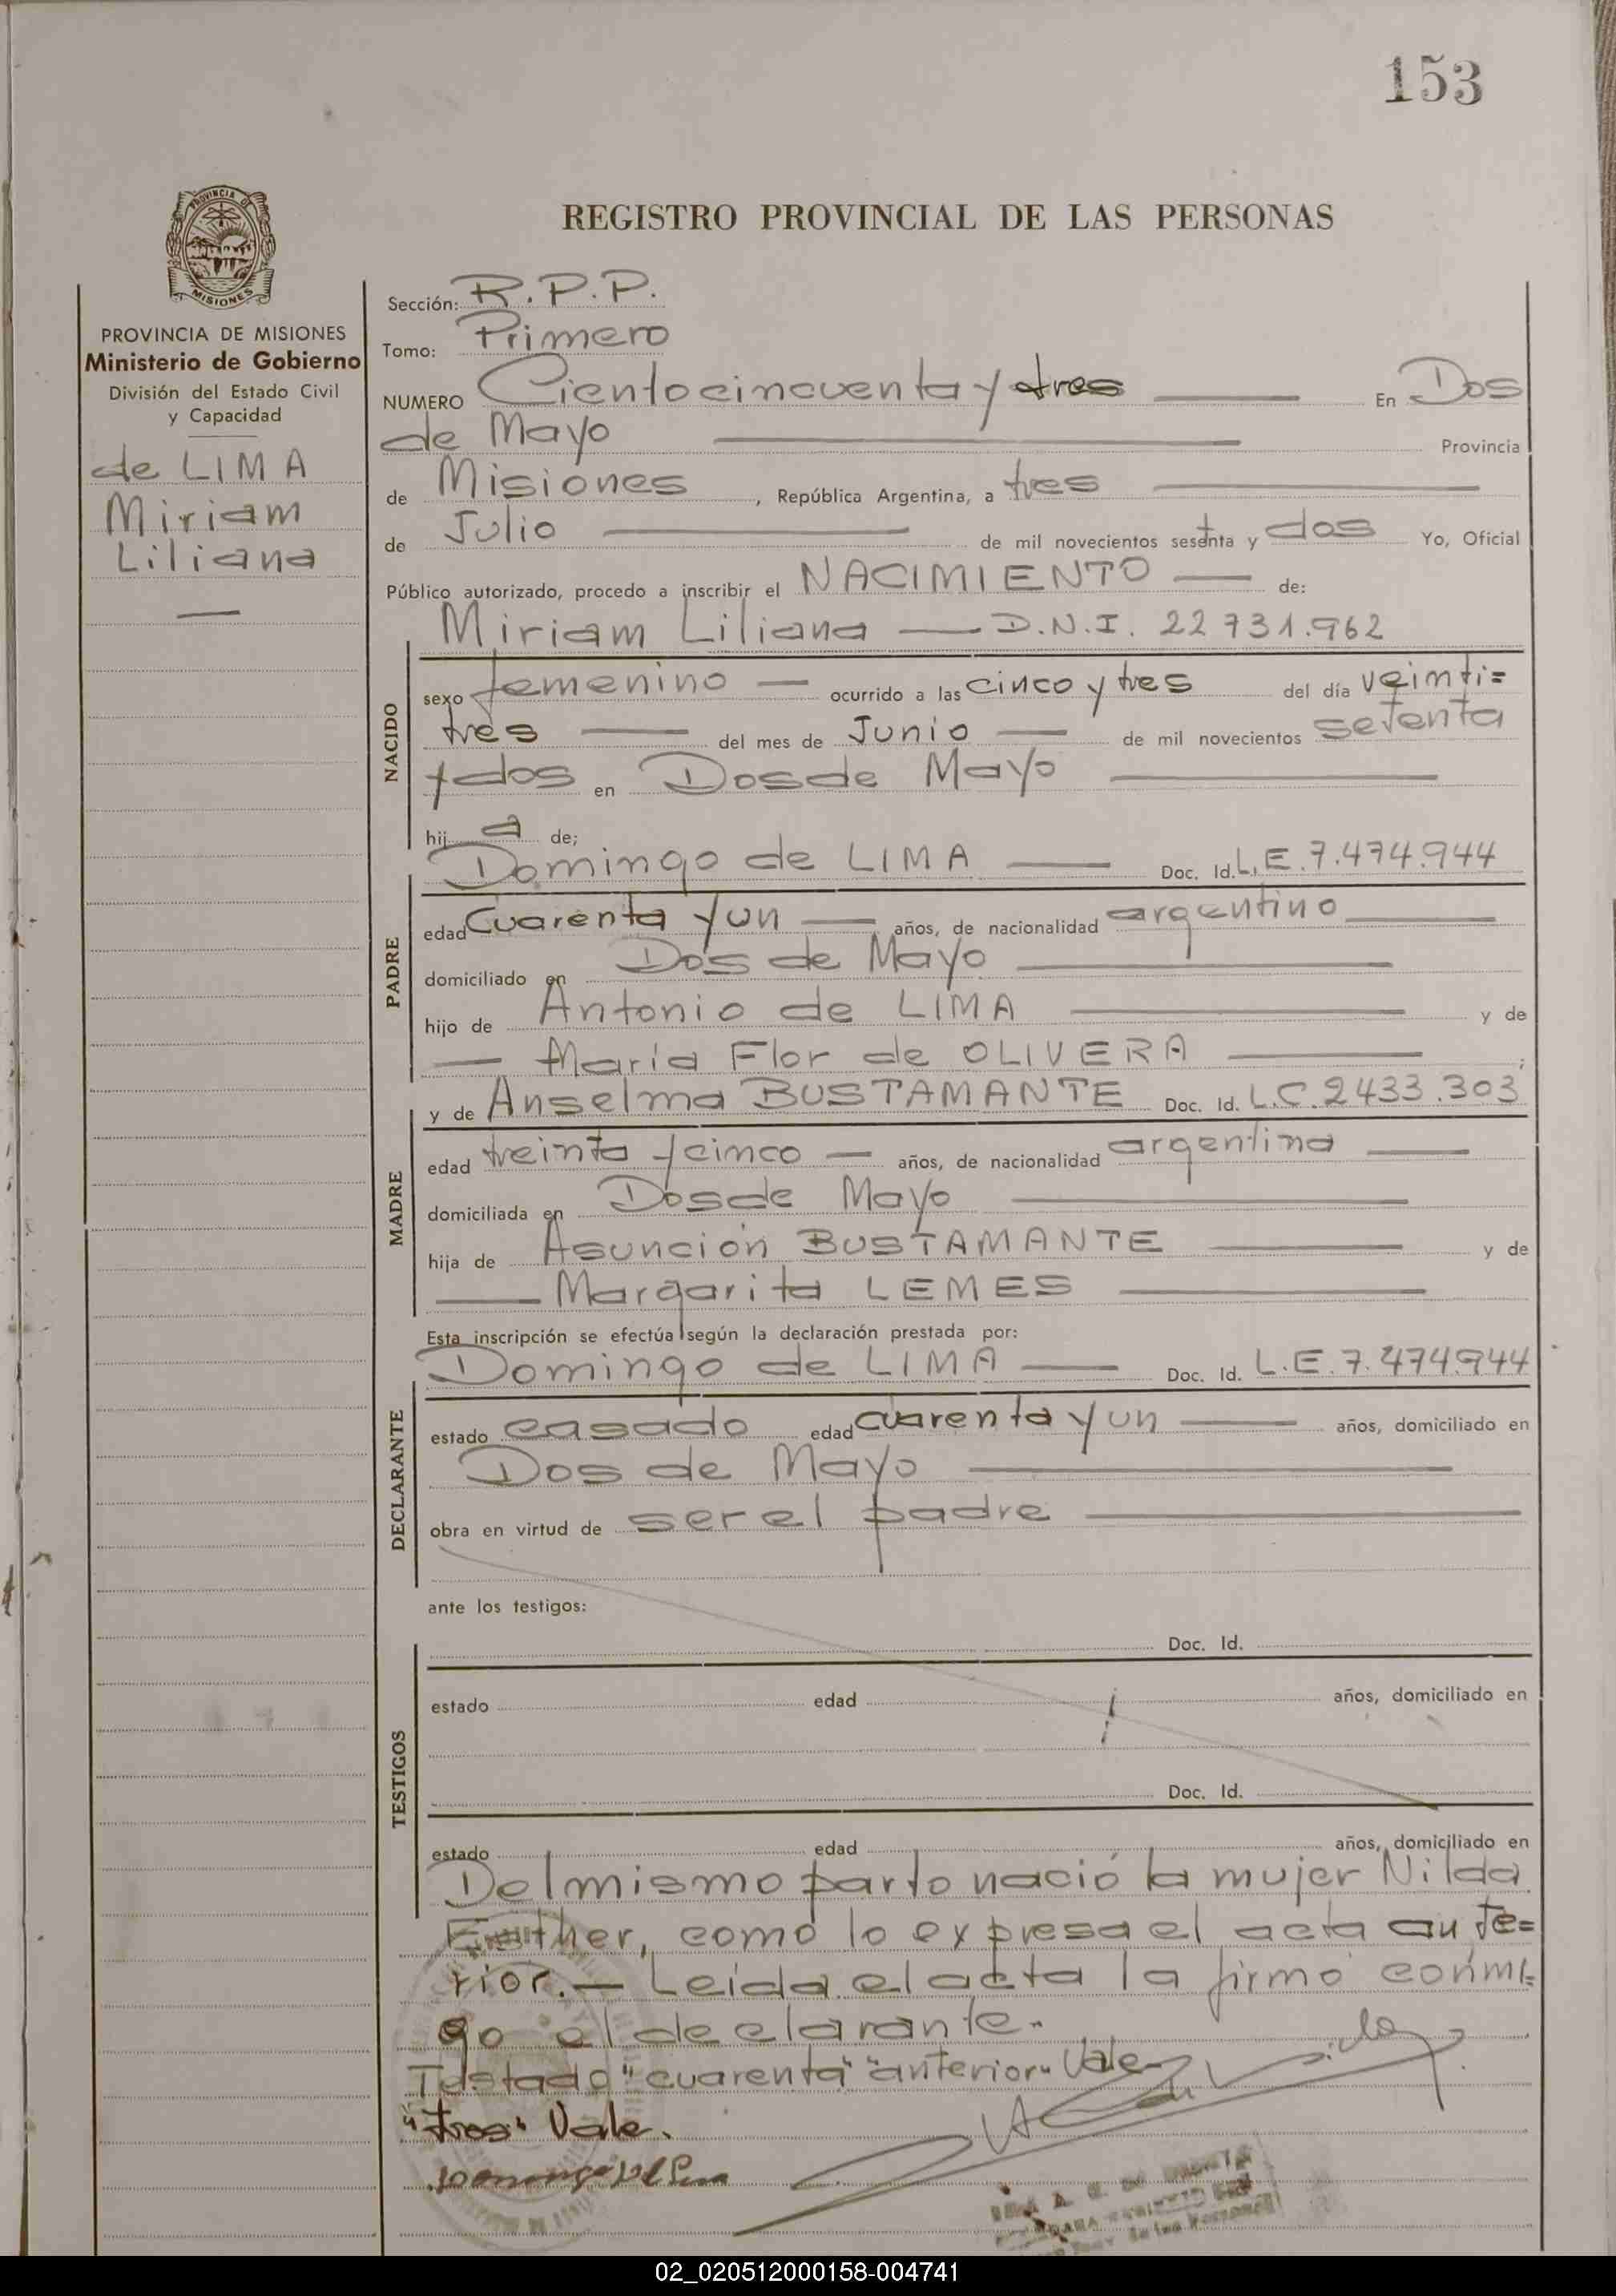 153
PROVINCIA DE
MISIONES
REGISTRO PROVINCIAL DE LAS PERSONAS
PROVINCIA DE MISIONES
Ministerio de Gobierno
División del Estado Civil
y Capacidad
de LIMA
Miriam
Liliana
Sección: R.P.P.
Tomo: Primero
NUMERO Cientocincuenta y tres En Dos
de Mayo Provincia
de Misiones, República Argentina, a tres
de Julio de mil novecientos setenta y dos Yo, Oficial
Público autorizado, procedo a inscribir el NACIMIENTO de:
Miriam Liliana D.N.I. 22731.962
NACIDO
sexo femenino ocurrido a las cinco y tres del día veinti=
tres del mes de Junio de mil novecientos setenta
y dos en Dos de Mayo
hij a de;
Domingo de LIMA Doc. Id. L.E.7.474.944
PADRE
edad Cuarenta y un años, de nacionalidad argentino
domiciliado en Dos de Mayo
hijo de Antonio de LIMA y de
María Flor de OLIVERA ;
y de Anselma BUSTAMANTE Doc. Id. L.C.2433.303
MADRE
edad treinta y cinco años, de nacionalidad argentina
domiciliada en Dos de Mayo
hija de Asunción BUSTAMANTE y de
Margarita LEMES
Esta inscripción se efectúa según la declaración prestada por:
Domingo de LIMA Doc. Id. L.E.7.474.944
DECLARANTE
estado casado edad cuarenta y un años, domiciliado en
Dos de Mayo
obra en virtud de ser el padre
ante los testigos:
Doc. Id.
TESTIGOS
estado edad años, domiciliado en
Doc. Id.
estado edad años, domiciliado en
Del mismo parto nació la mujer Nilda
Esther, como lo expresa el acta ante=
rior.- Leída el acta la firmó conmi=
go el declarante.
Testado "cuarenta" "anterior" Vale
"tres" Vale.
02_020512000158-004741